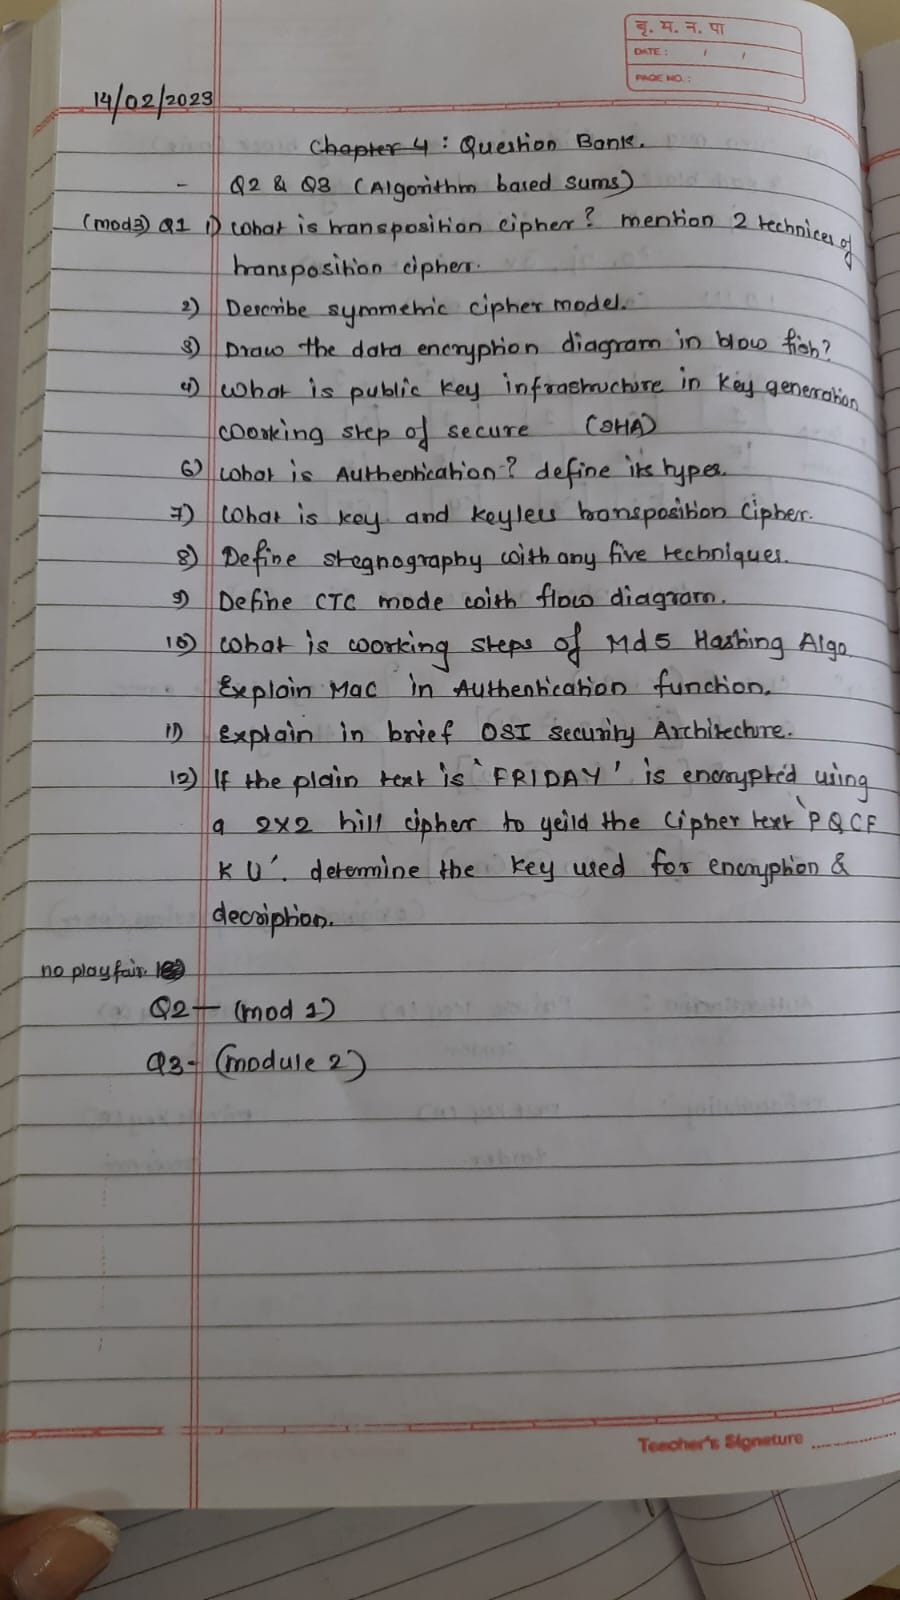 बृ. म. न. पा
DATE : / /
PAGE NO. :
14/02/2023
Chapter 4 : Question Bank.
- Q2 & Q3 (Algorithm based sums)
(mod3) Q1 1) What is transposition cipher? mention 2 technices of
transposition cipher.
2) Describe symmetric cipher model.
3) Draw the data encryption diagram in blow fish?
4) What is public key infrastructure in key generation
Working step of secure (SHA)
6) What is Authentication? define its types.
7) What is key and keyless transposition Cipher.
8) Define stegnography with any five techniques.
9) Define CTC mode with flow diagram.
10) What is working steps of Md5 Hashing Algo
Explain Mac in Authentication function.
11) Explain in brief OSI security Architecture.
12) If the plain text is 'FRIDAY' is encrypted using
a 2x2 hill cipher to yeild the Cipher text 'PQCF
KU'. determine the key used for encryption &
decription.
no playfair
Q2 - (mod 1)
Q3 - (module 2)
Teacher's Signature